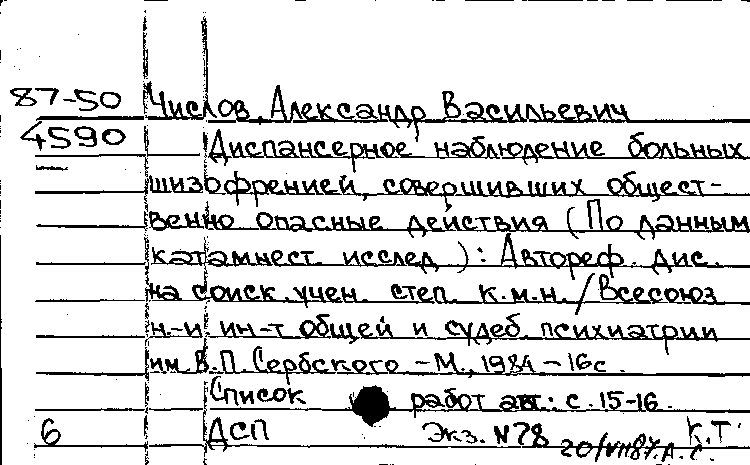 87-50 Числов, Александр Васильевич
4590 Диспансерное наблюдение больных
шизофренией, совершивших общест-
венно опасные действия (По данным
катамнест. исслед.): Автореф. дис.
на соиск. учен. степ. к.м.н. / Всесоюз
н.-и. ин-т общей и судеб. психиатрии
им. В.П. Сербского - М., 1984 - 16с.
Список работ авт.: с. 15-16.
6 ДСП Экз. N78 К.Т.